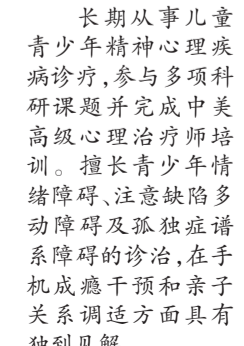 长期从事儿童
青少年精神心理疾
病诊疗,参与多项科
研课题并完成中美
高级心理治疗师培
训。擅长青少年情
绪障碍、注意缺陷多
动障碍及孤独症谱
系障碍的诊治,在手
机成瘾干预和亲子
关系调适方面具有
独到见解